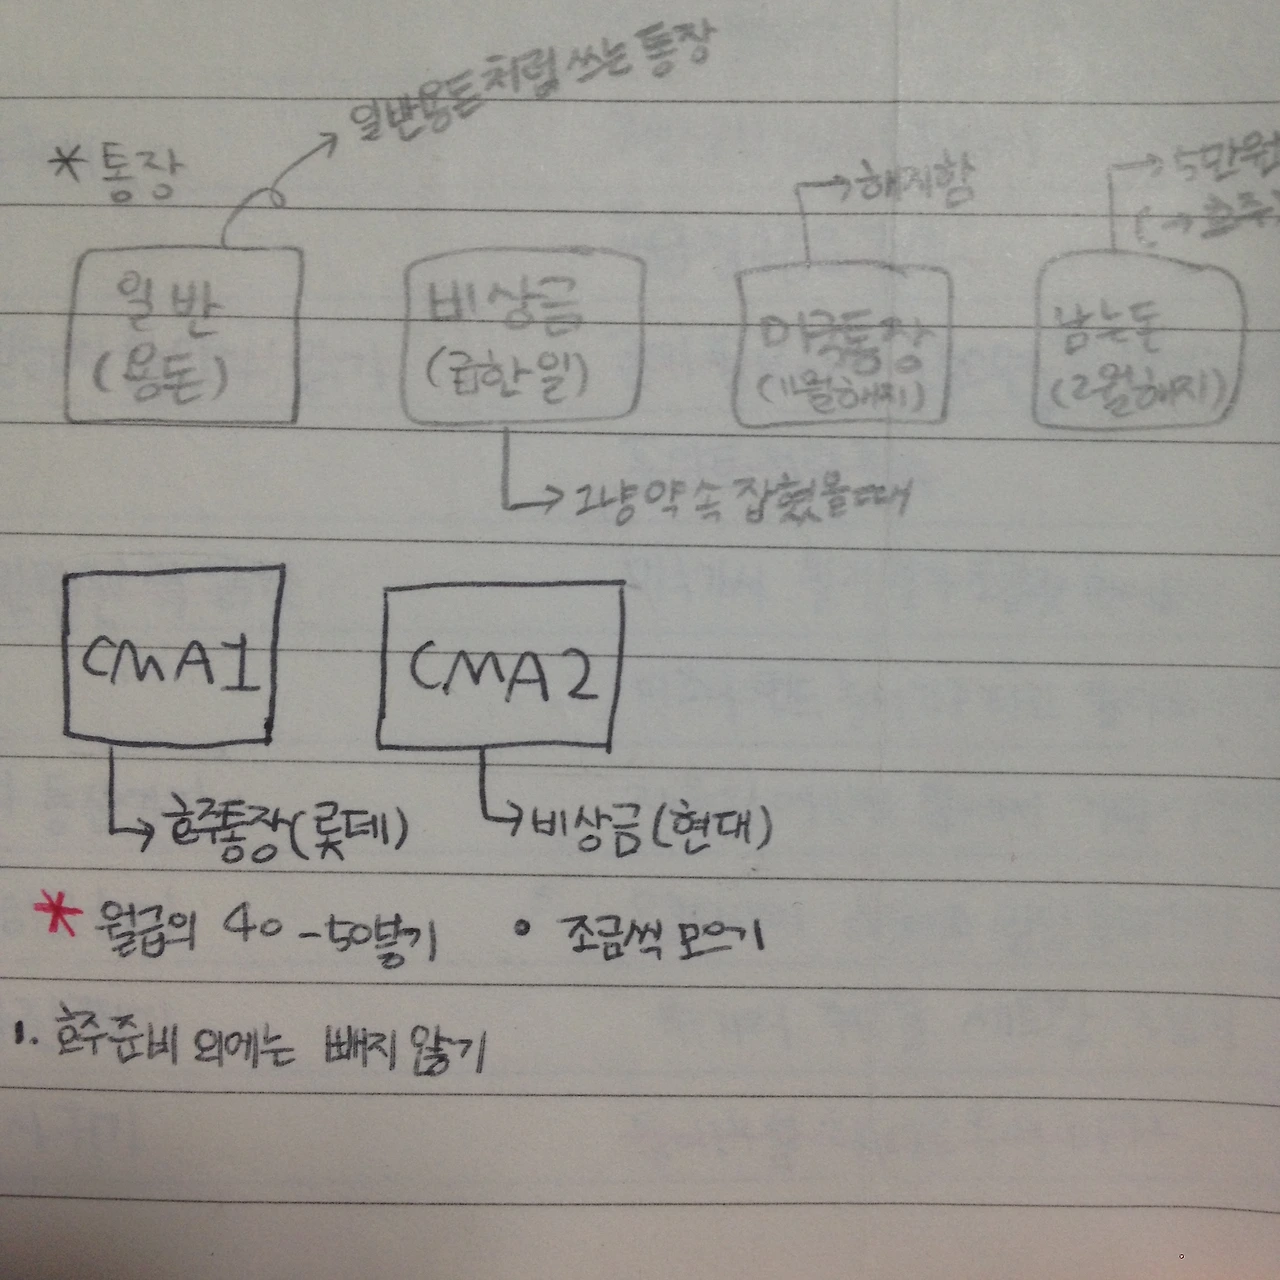 일반용돈처럼 쓰는 통장
* 통장
→ 해지함
→ 5만원
일반 (용돈)
비상금 (급한일)
미국통장 (11월해지)
남는돈 (2월해지)
→ 그냥 약속 잡혔을때
CMA1
CMA2
→ 호주통장(롯데)
→ 비상금(현대)
* 월급의 40-50붙기 • 조금씩 모으기
1. 호주준비 외에는 빼지 않기